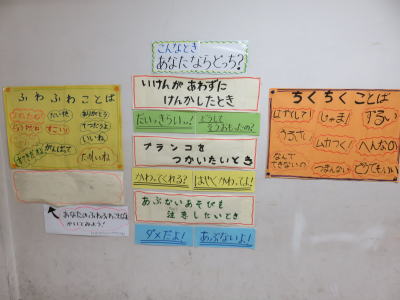 こんなとき
あなたならどっち?
いけんがあわずに
けんかしたとき
だいっきらいっ!
どうして
そうおもったの?
ブランコを
つかいたいとき
かわってくれる?
はやくかわってよ!
あぶないあそびを
注意したいとき
ダメだよ!
あぶないよ!
ふわふわことば
だいすき
ありがとう
すごい
てつだうよ
いいね
がんばって
たのしいね
あなたのふわふわことばも
かいてみよう!
ちくちくことば
はやくして!
じゃま!
ずるい
うるさい
ムカつく!
へんなの
なんで
できないの
つまんない
どうでもいい